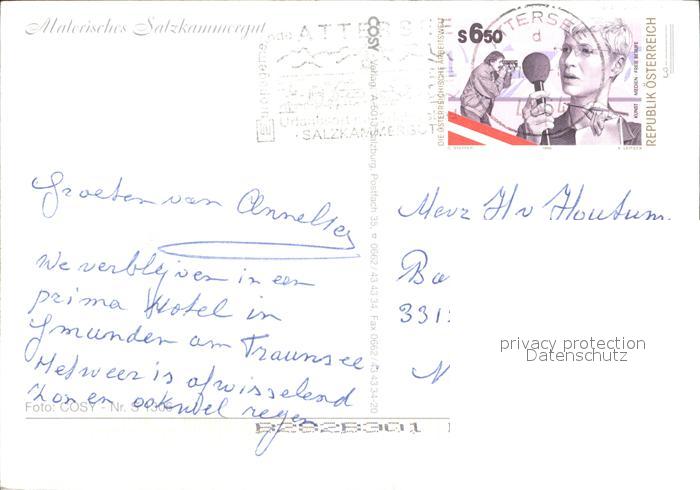 Malerisches Salzkammergut
ATTERSEE
SALZKAMMERGUT
S 6.50
DIE ÖSTERREICHISCHE ARBEITSWELT
KUNST · MEDIEN · FREIE BERUFE
REPUBLIK ÖSTERREICH
COSY Verlag, A-5013 Salzburg, Postfach 35, ¤ 0662 / 43 43 34, Fax 0662 / 43 43 34-20
Groeten van Annelies
We verblijven in een
prima Hotel in
Gmunden am Traunsee.
Het weer is afwisselend
Zon en ook wel regen
Mevr H v Houtum.
Ba
331
N
privacy protection
Datenschutz
Foto: COSY - Nr. S